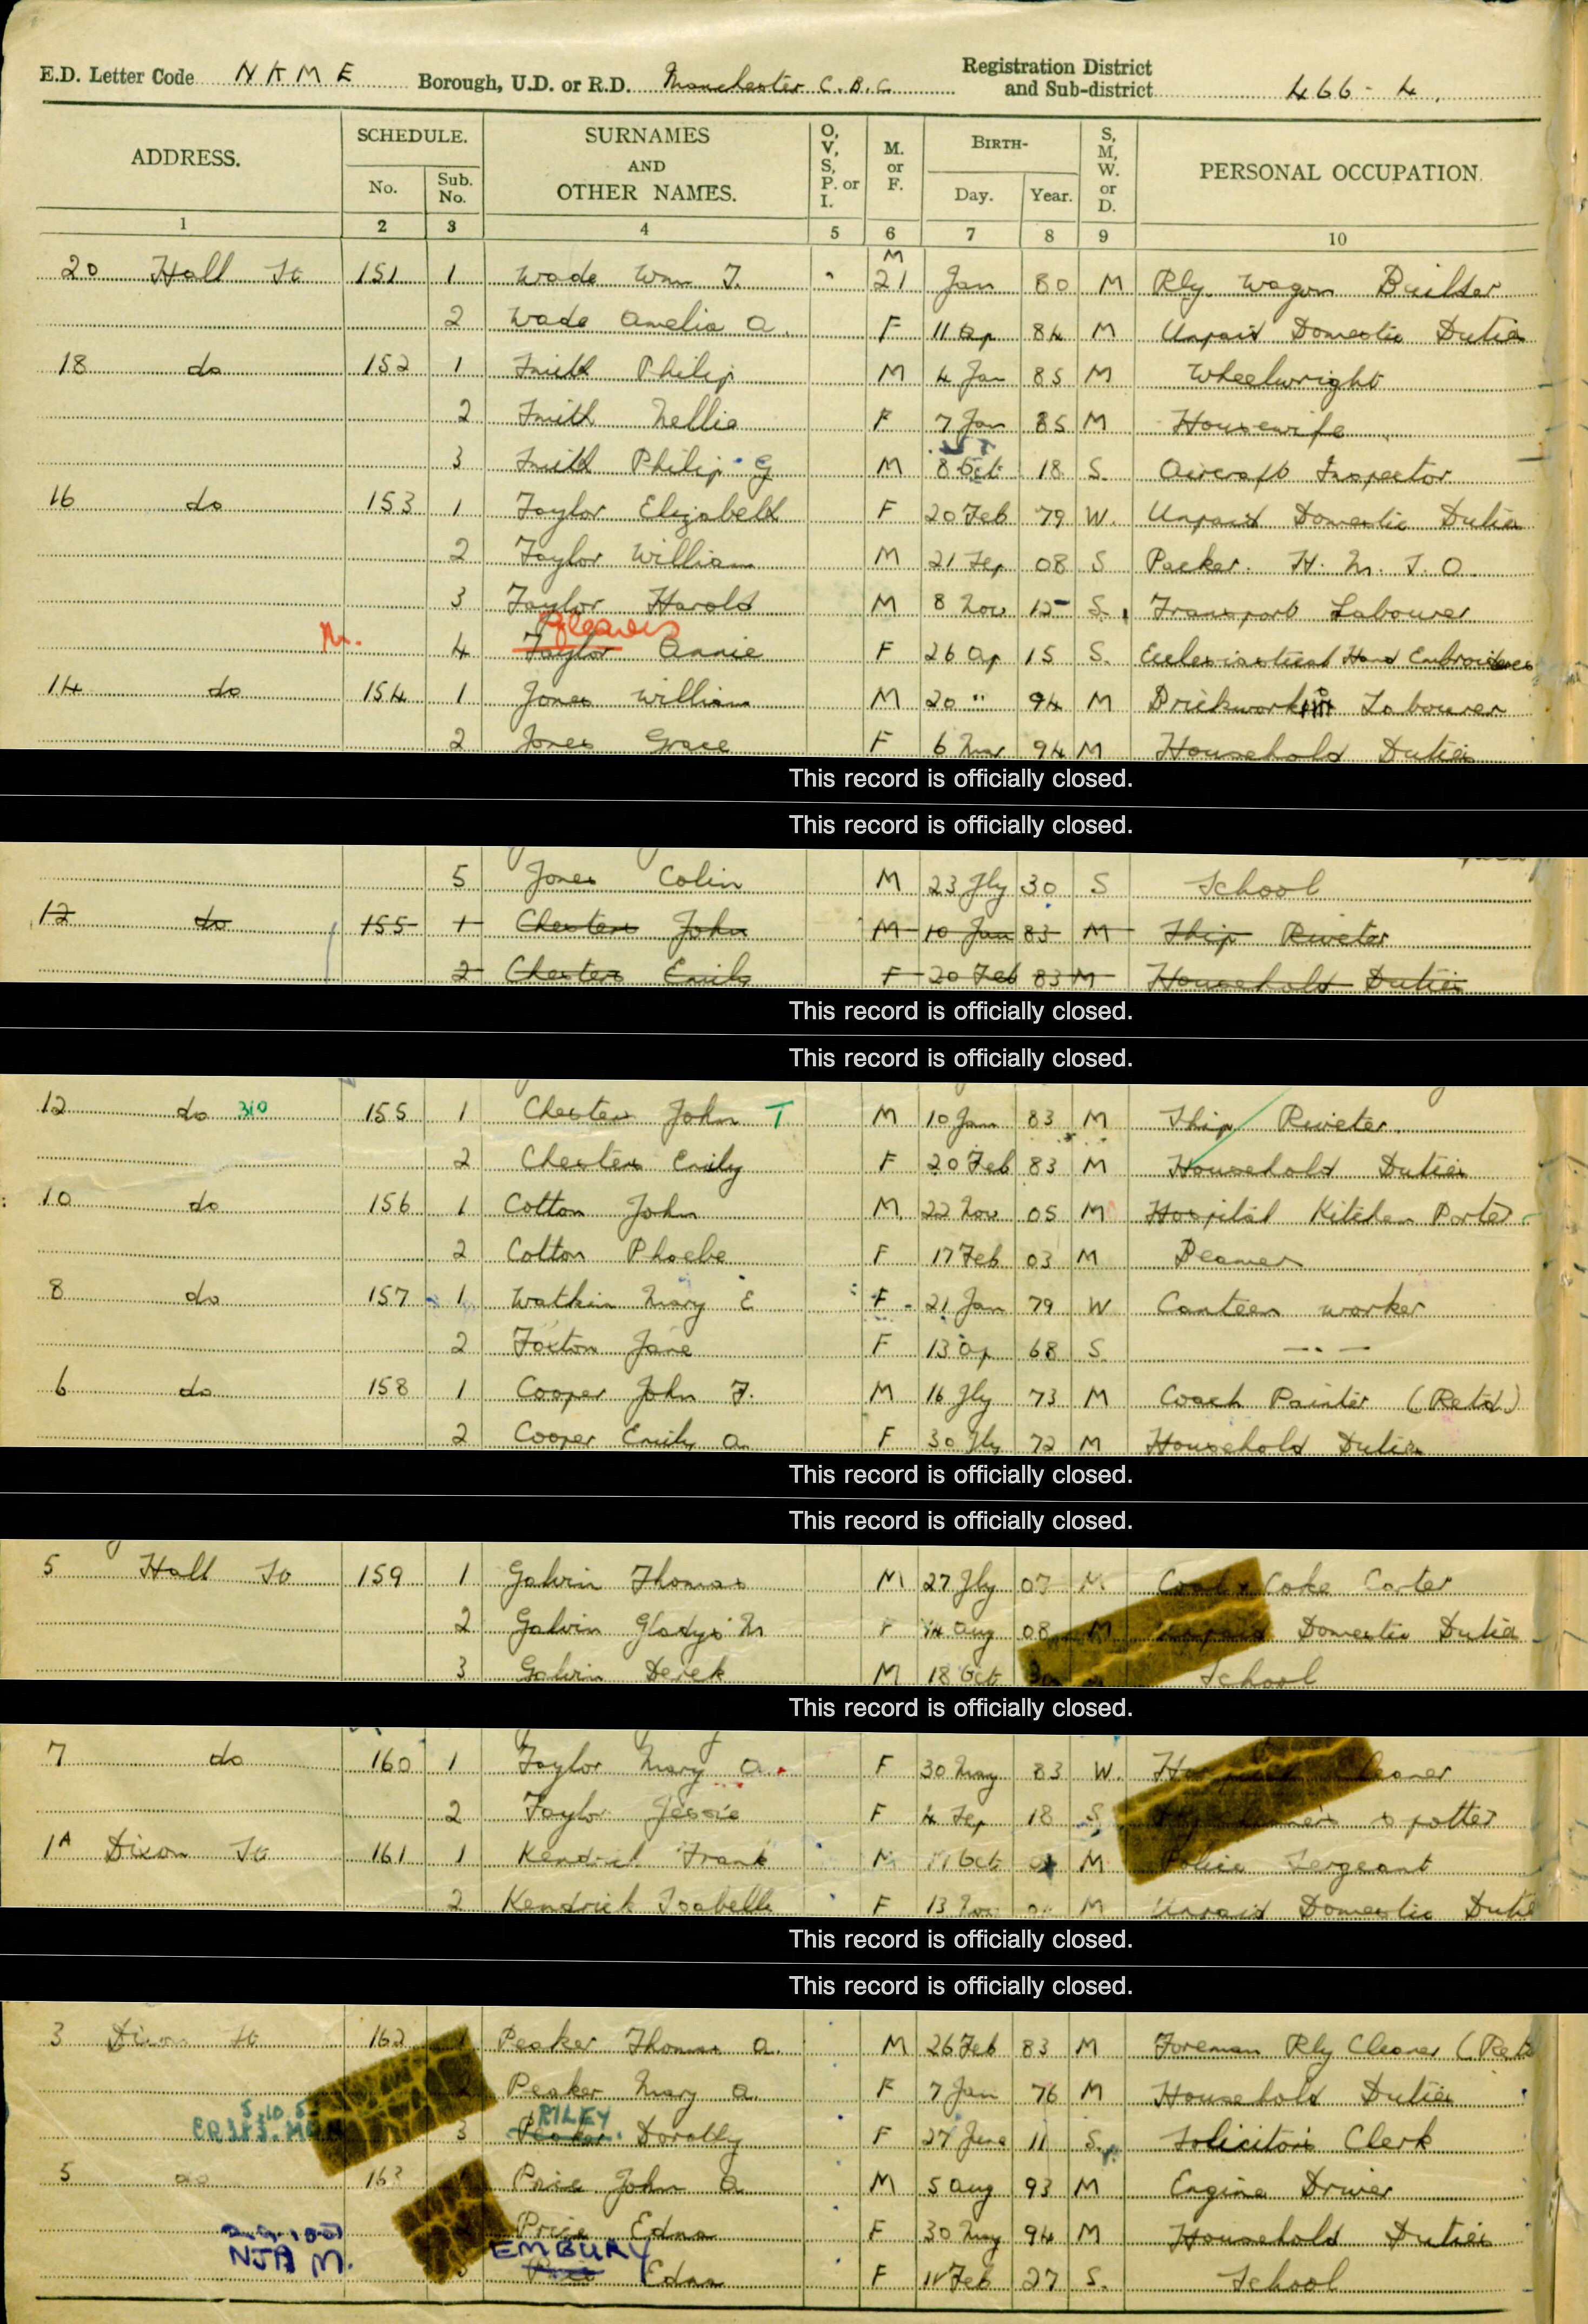 E.D. Letter Code N K M E Borough, U.D. or R.D. Manchester C.B.C. Registration District and Sub-district 466-4.
ADDRESS. SCHEDULE. No. Sub. No. SURNAMES AND OTHER NAMES. O, V, S, P. or I. M. or F. BIRTH- Day. Year. S, M, W. or D. PERSONAL OCCUPATION.
1 2 3 4 5 6 7 8 9 10
20 Hall St 151 1 Wade Wm T. M 21 Jan 80 M Rly Wagon Builder
2 Wade Amelia A. F 11 Ap 84 M Unpaid Domestic Duties
18 do 152 1 Smith Philip M 4 Jan 85 M Wheelwright
2 Smith Nellie F 7 Jan 85 M Housewife
3 Smith Philip G M 8 Oct 18 S. Aircraft Inspector
16 do 153 1 Taylor Elizabeth F 20 Feb 79 W. Unpaid Domestic Duties
2 Taylor William M 21 Sep 08 S Packer. H. M. S. O.
3 Taylor Harold M 8 Nov 12 S. Transport Labourer
4 Taylor Annie F 26 Ap 15 S. Ecclesiastical Hand Embroideress
14 do 154 1 Jones William M 20 " 94 M Brickwork Labourer
2 Jones Grace F 6 Mar 94 M Household Duties
This record is officially closed.
This record is officially closed.
5 Jones Colin M 23 Jly 30 S School
12 do 155 1 Chesters John M 10 Jan 83 M Ship Riveter
2 Chesters Emily F 20 Feb 83 M Household Duties
This record is officially closed.
This record is officially closed.
12 do 310 155 1 Chesters John T M 10 Jan 83 M Ship Riveter
2 Chesters Emily F 20 Feb 83 M Household Duties
10 do 156 1 Cotton John M. 22 Nov 05 M Hospital Kitchen Porter
2 Cotton Phoebe F 17 Feb 03 M Beamer
8 do 157 1 Watkin Mary E F 21 Jan 79 W Canteen worker
2 Foxton Jane F 13 Ap 68 S. —.—
6 do 158 1 Cooper John F. M 16 Jly 73 M Coach Painter (Retd)
2 Cooper Emily A. F 30 Jly 72 M Household Duties
This record is officially closed.
This record is officially closed.
5 Hall St 159 1 Galvin Thomas M 27 Jly 07 M Coal & Coke Carter
2 Galvin Gladys M F 14 Aug 08 M Unpaid Domestic Duties
3 Galvin Derek M 18 Oct School
This record is officially closed.
7 do 160 1 Taylor Mary A. F 30 May 83 W. Cleaner
2 Taylor Jessie F 4 Sep 18 S. & potter
1A Dixon St 161 1 Kendrick Frank M 11 Oct M Police Sergeant
2 Kendrick Isabella F 13 Nov M Unpaid Domestic Duties
This record is officially closed.
This record is officially closed.
3 Dixon St 162 Peaker Thomas A. M 26 Feb 83 M Foreman Rly Cleaner (Retd
Peaker Mary A. F 7 Jan 76 M Household Duties
RILEY
3 Peaker Dorothy F 27 June 11 S. Solicitors Clerk
5 do 163 Price John A. M 5 Aug 93 M Engine Driver
Price Edna F 30 May 94 M Household Duties
NJA M. EMBURY
Price Edna F 11 Feb 27 S. School